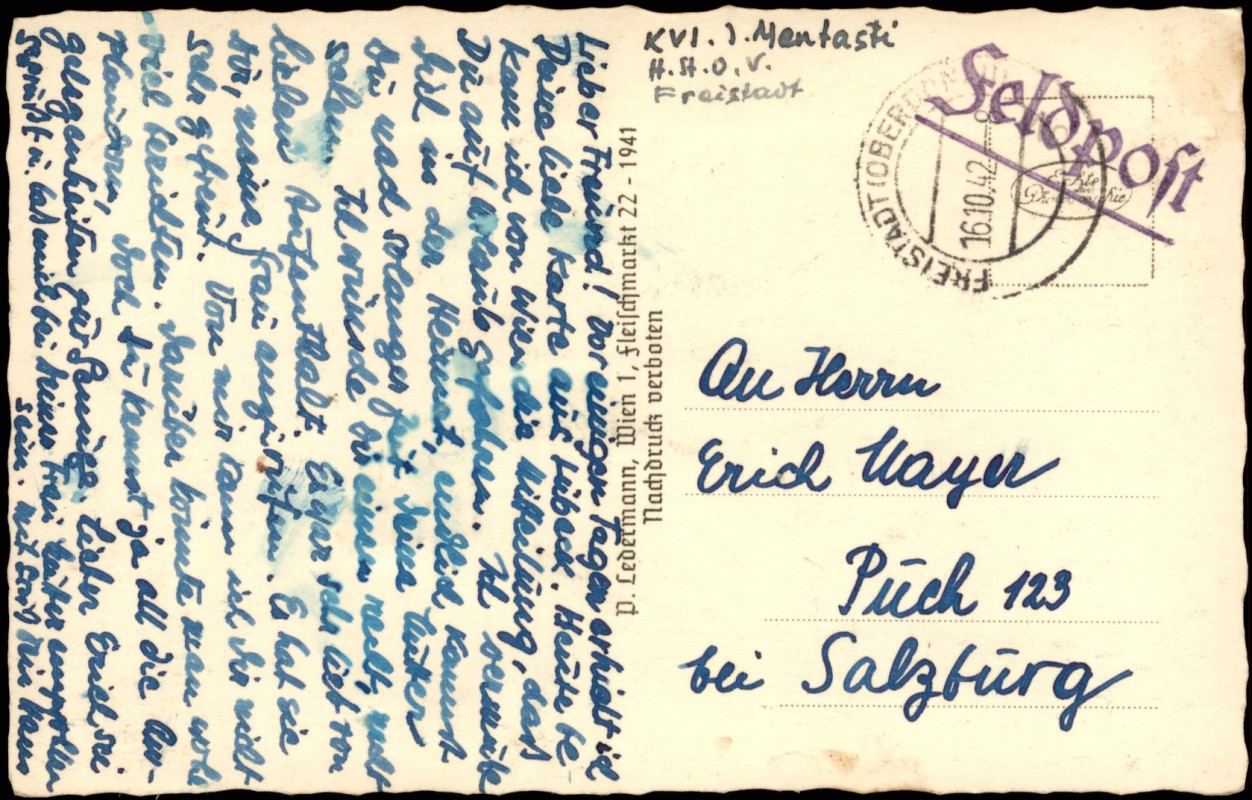 KVI. J. Mentasti
H.St.O.V.
Freistadt
Feldpost
FREISTADT (OBERDONAU)
16.10.42
Echte
An Herrn
Erich Mayer
Puch 123
bei Salzburg
P. Ledermann, Wien 1, Fleischmarkt 22 - 1941
Nachdruck verboten
Lieber Freund! Vor einigen Tagen erhielt ich
Deine liebe Karte aus Lübeck. Heute be-
kam ich von Wien die Mitteilung, dass
Du auf Urlaub gefahren. Ich vermute
Dich in der Heimat, endlich kannst
Du nach solanger Zeit Deine Mutter
sehen. Ich wünsche Dir einen recht, recht
lieben Aufenthalt. Es war sehr lieb von
Dir, meine Frau anzurufen. Es hat sie
sehr gefreut. Von mir kann ich Dir nicht
viel berichten. Darüber könnte man wohl
plaudern, doch Du kennst ja all die An-
gelegenheiten zur Genüge. Lieber Erich sei
gegrüßt u. lass mich bei Deiner Frau Mutter empfohlen
sein. Mit Dein Hans